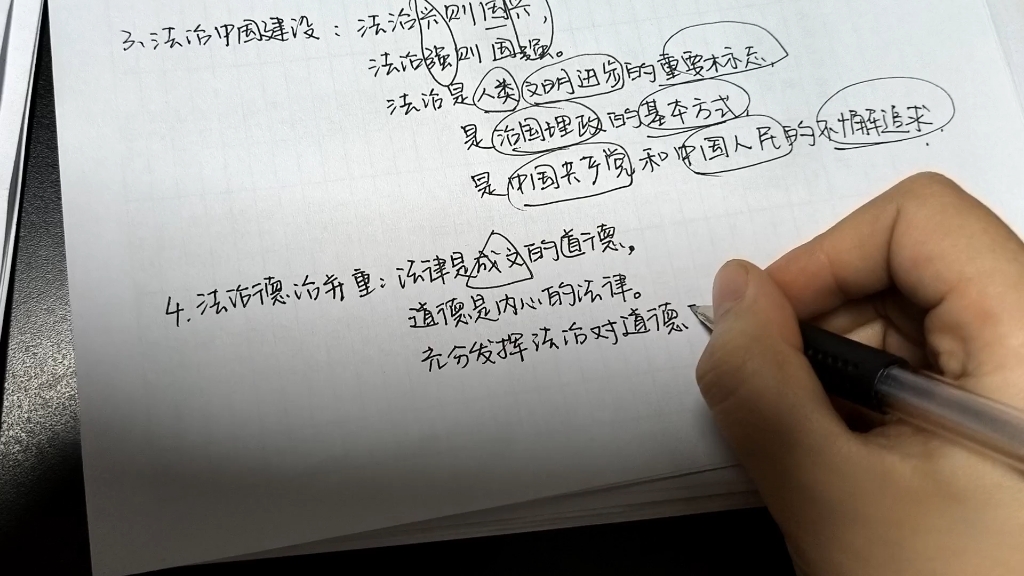 3、法治中国建设：法治兴则国兴，
法治强则国强。
法治是人类文明进步的重要标志，
是治国理政的基本方式，
是中国共产党和中国人民的不懈追求.
4.法治德治并重：法律是成文的道德，
道德是内心的法律。
充分发挥法治对道德